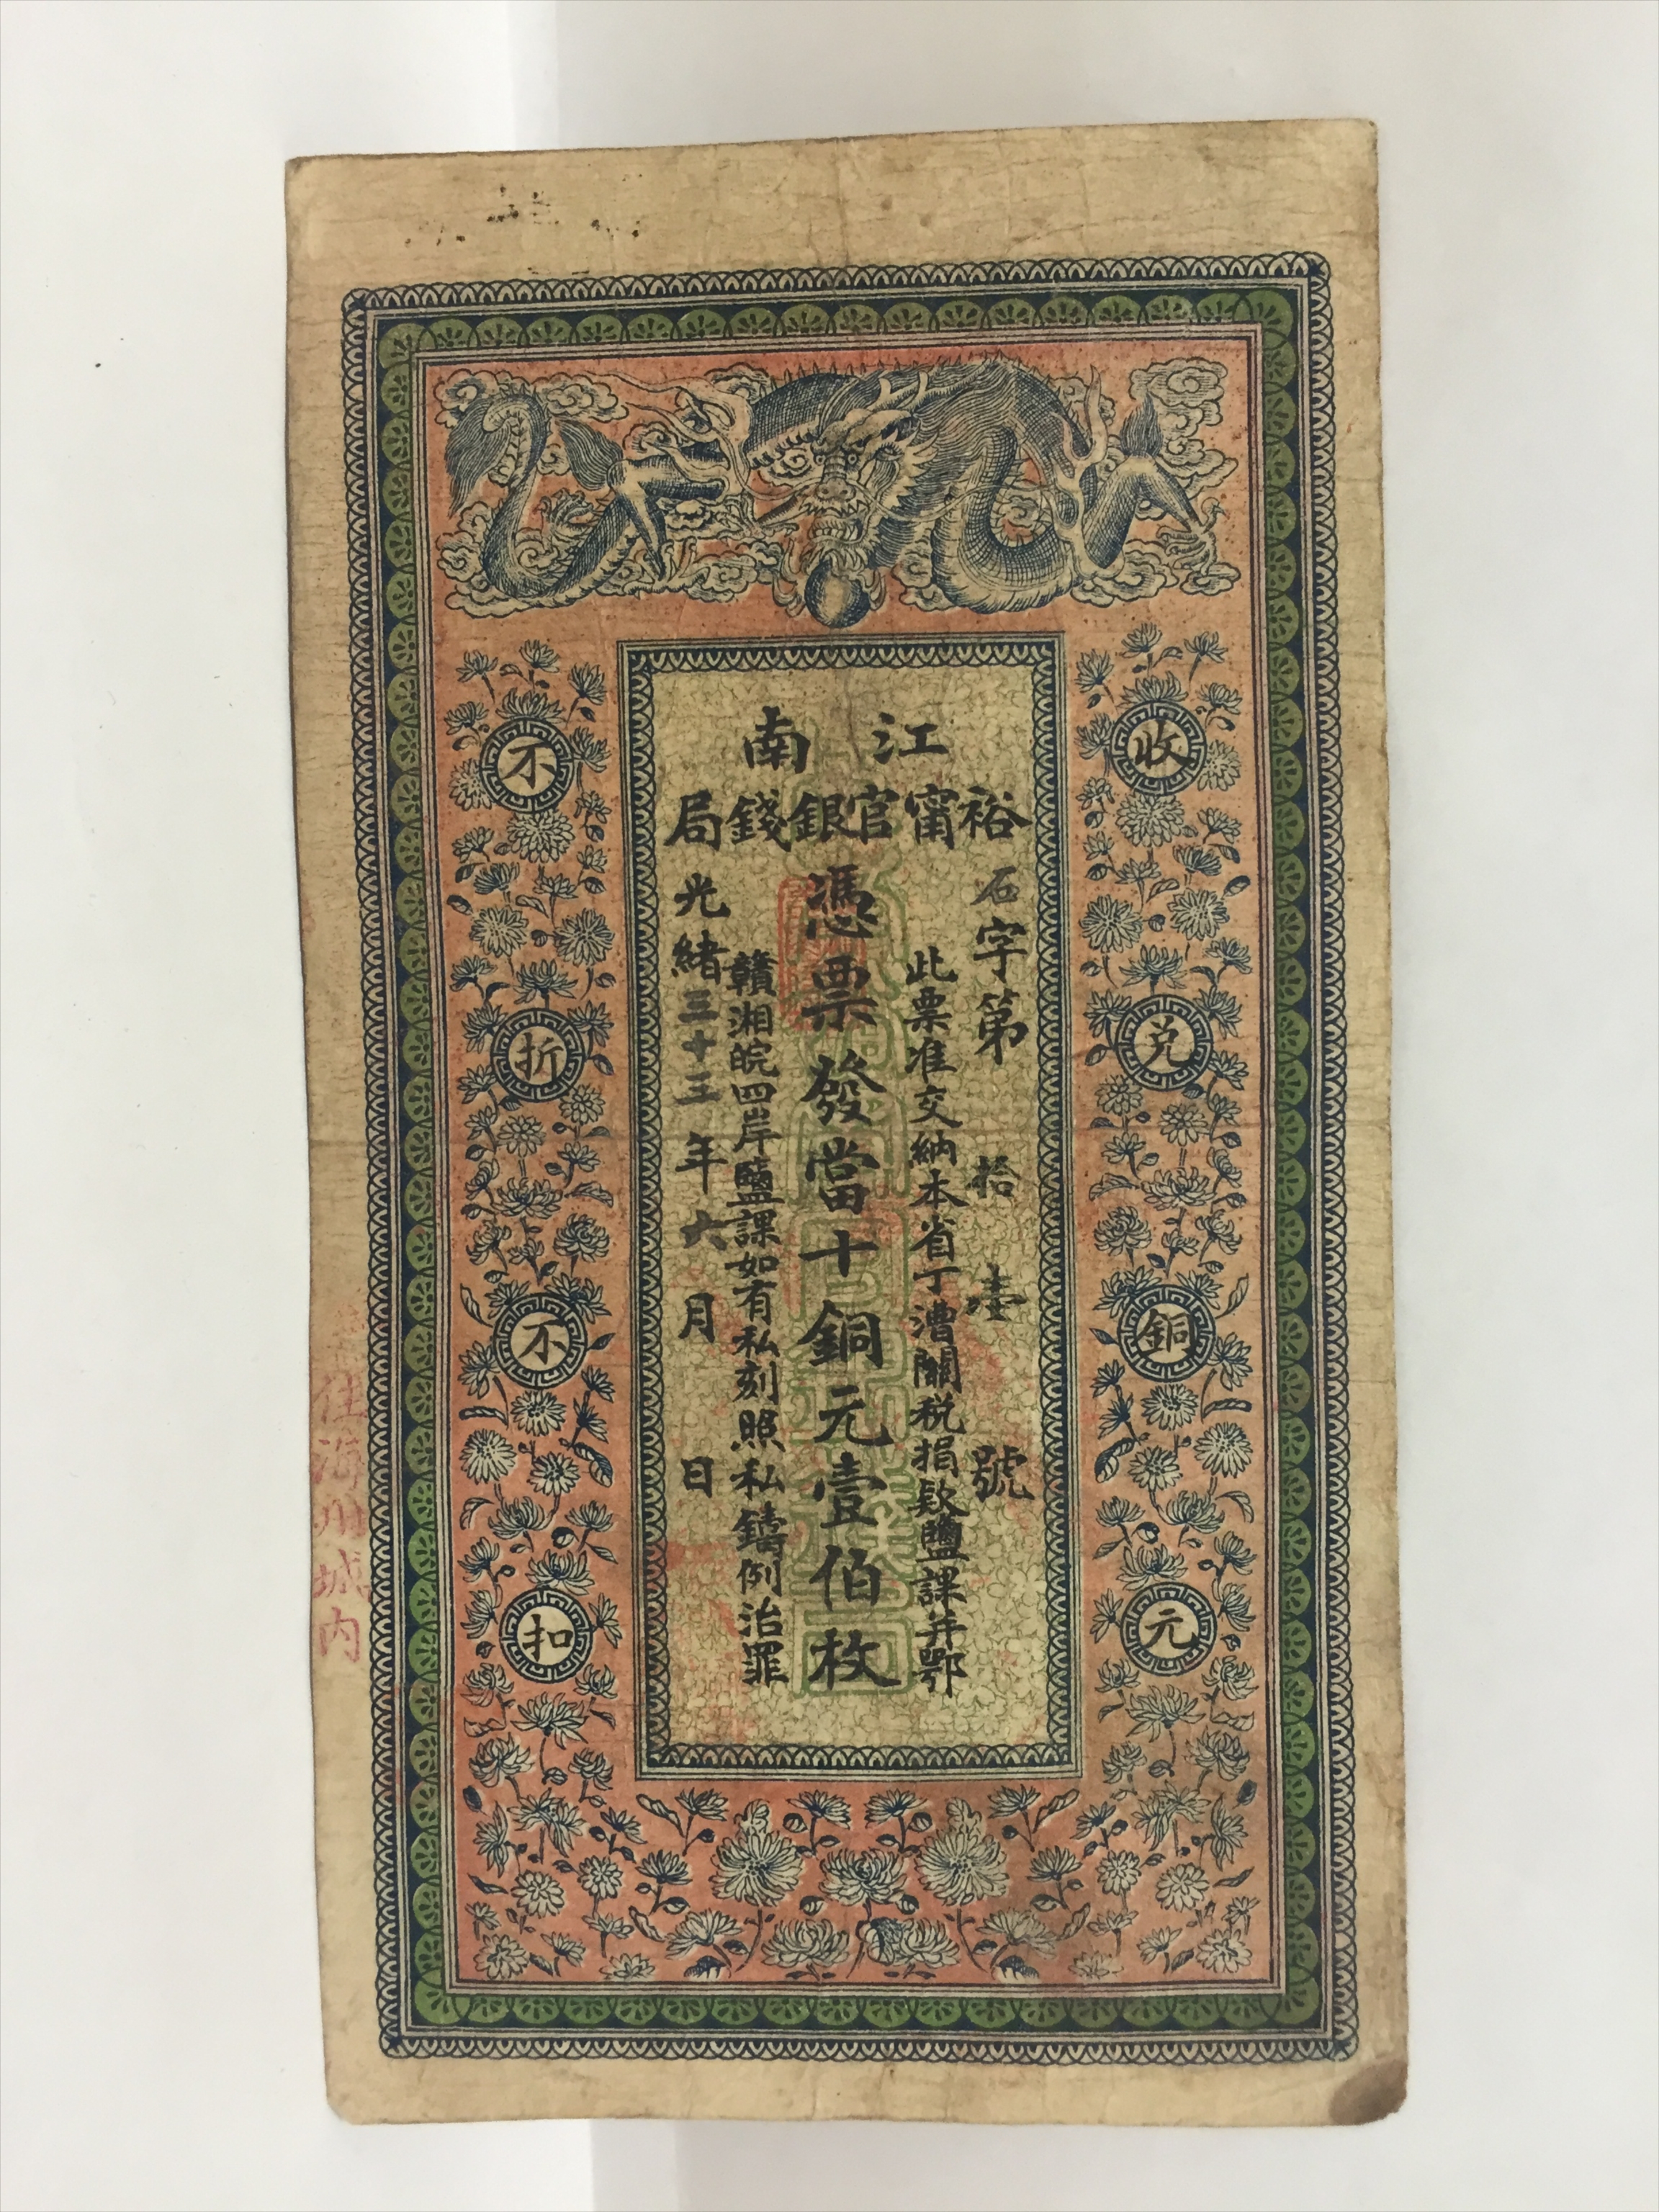 江南
裕甯官銀錢局
石字第拾壹號
此票准交納本省丁漕關税捐欵鹽課并鄂
憑票發當十銅元壹伯枚
贛湘皖四岸鹽課如有私刻照私鑄例治罪
光緒三十三年六月日
收兑銅元
不折不扣
住海州城内